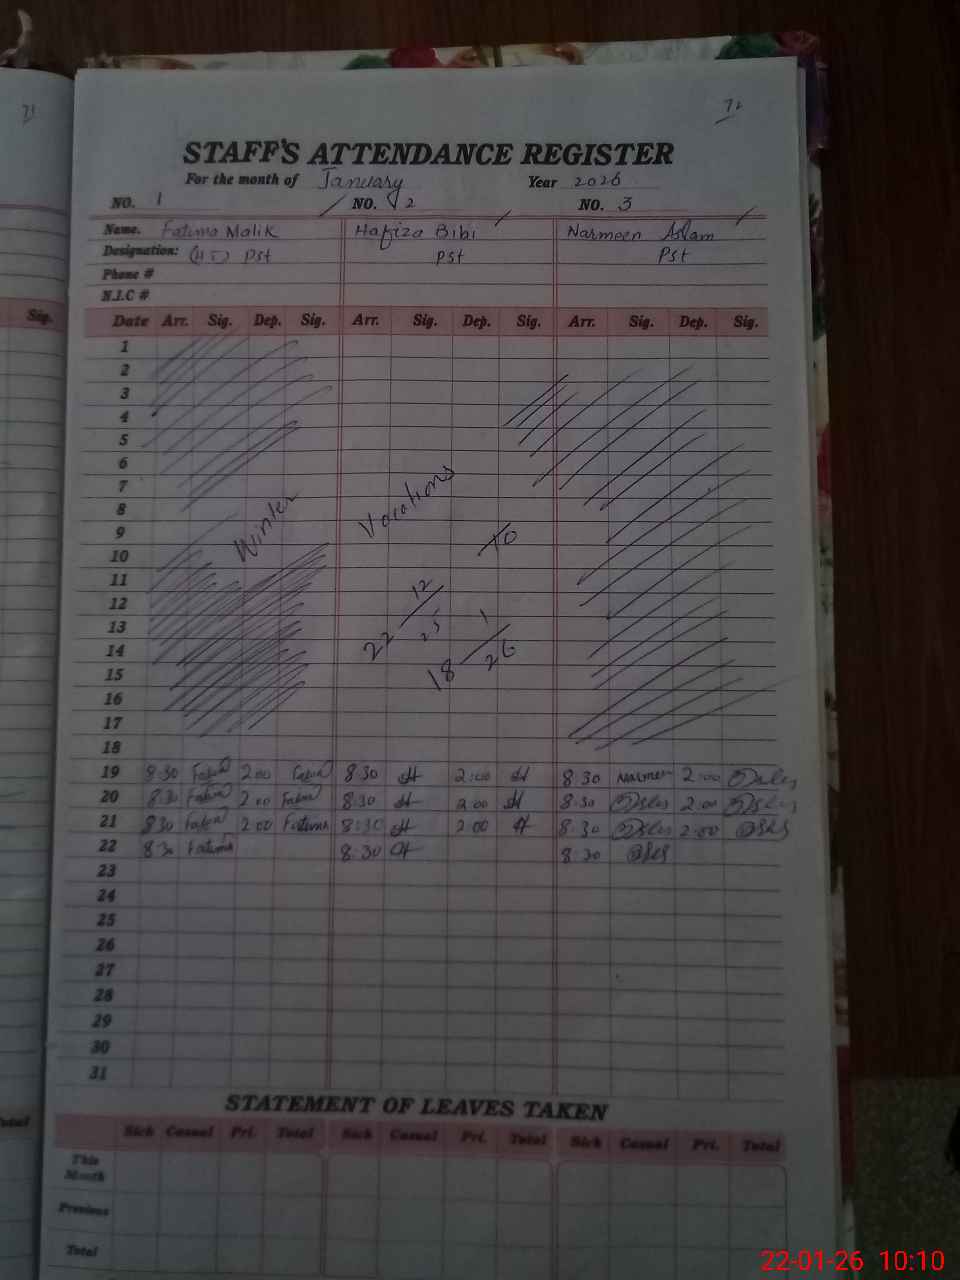 71
72
STAFF'S ATTENDANCE REGISTER
For the month of January Year 2026
NO. 1 NO. 2 NO. 3
Name. Fatima Malik Hafiza Bibi Narmeen Aslam
Designation: PST PST PST
Phone #
N.I.C #
Sig. Date Arr. Sig. Dep. Sig. Arr. Sig. Dep. Sig. Arr. Sig. Dep. Sig.
1
2
3
4
5
6
7
8
9
10
11
12
13
14
15
16
17
18
Winter Vacations
TO
22/12/25
18/1/26
19 8:30 Fatima 2:00 Fatima 8:30 2:00 8:30 Narmeen 2:00
20 8:30 Fatima 2:00 Fatima 8:30 2:00 8:30 2:00
21 8:30 Fatima 2:00 Fatima 8:30 2:00 8:30 2:00
22 8:30 Fatima 8:30 8:30
23
24
25
26
27
28
29
30
31
STATEMENT OF LEAVES TAKEN
Total Sick Casual Pri. Total Sick Casual Pri. Total Sick Casual Pri. Total
This Month
Previous
Total
22-01-26 10:10